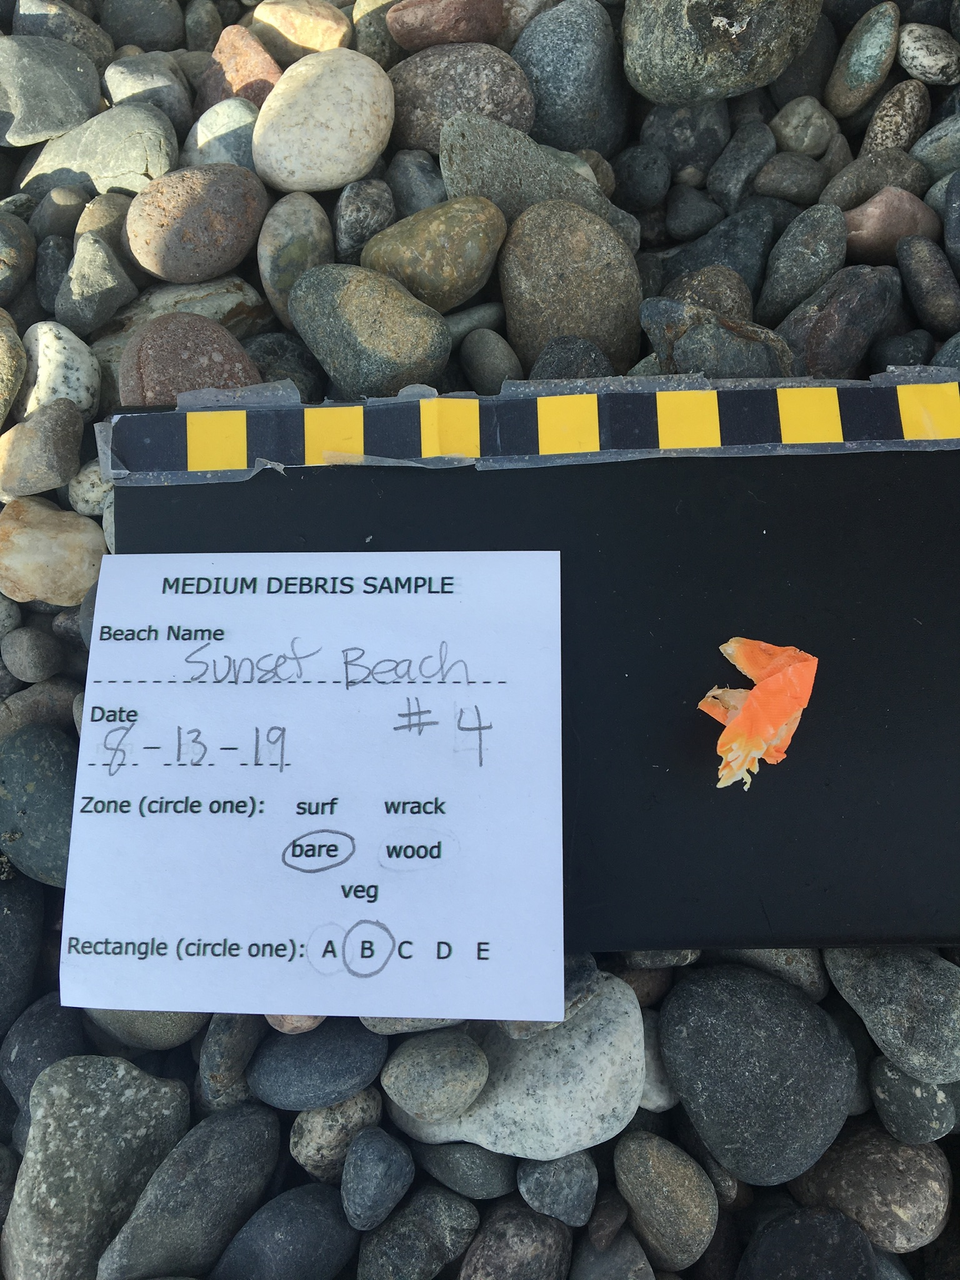 MEDIUM DEBRIS SAMPLE
Beach Name
Sunset Beach
Date
8-13-19 #4
Zone (circle one): surf wrack
bare wood
veg
Rectangle (circle one): A B C D E